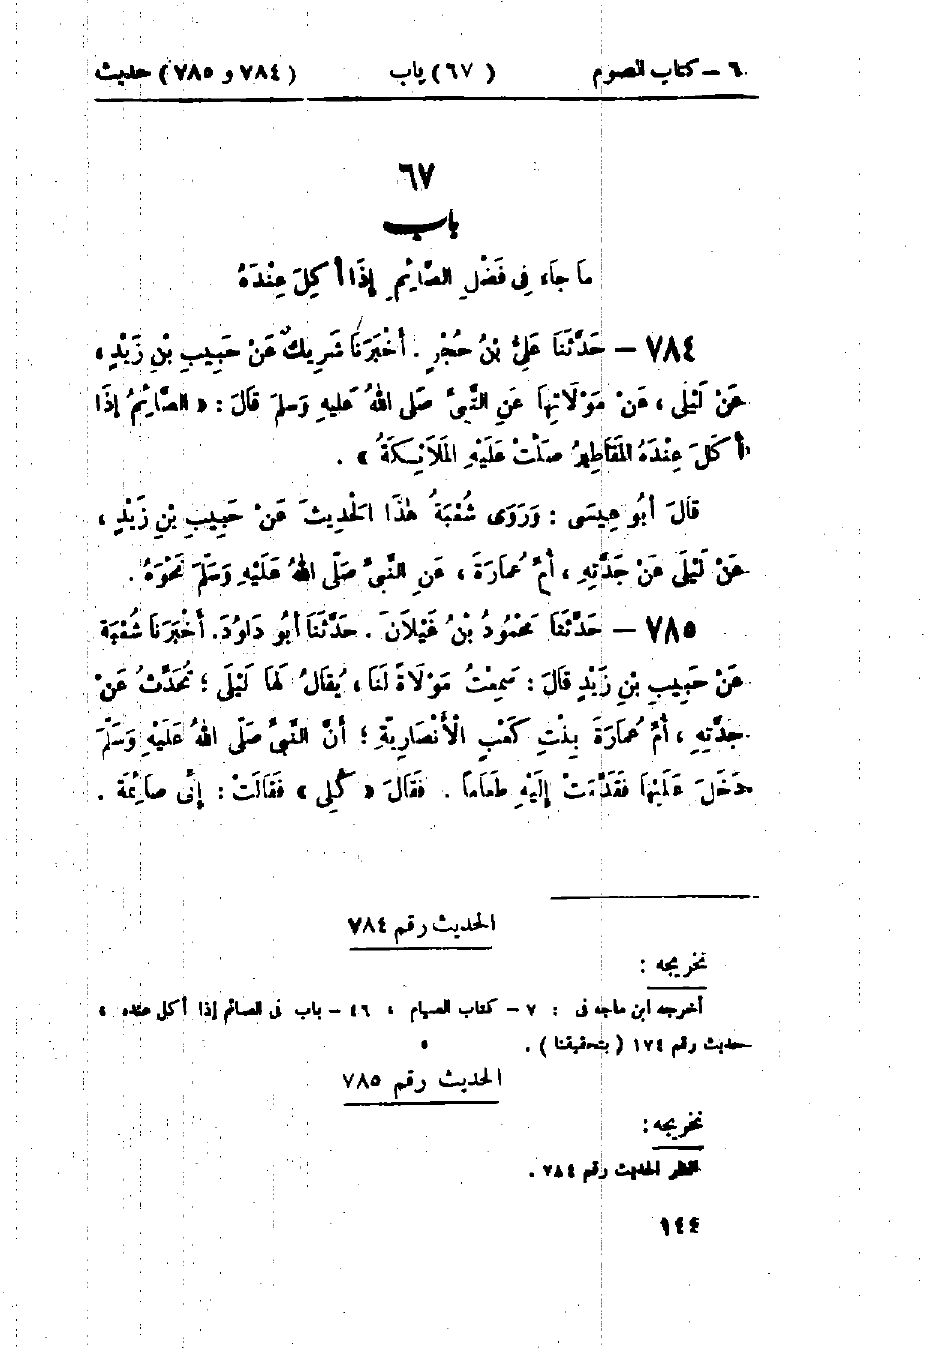 ٦ – كتاب الصوم (٦٧) باب (٧٨٤ و ٧٨٥) حديث
٦٧
باب
مَا جَاءَ فِى فَضْلِ الصَّائِمِ إِذَا أُكِلَ عِنْدَهُ
٧٨٤ – حَدَّثَنَا عَلِىُّ بْنُ حُجْرٍ . أَخْبَرَنَا شَرِيكٌ عَنْ حَبِيبِ بْنِ زَيْدٍ ،
عَنْ لَيْلَى ، عَنْ مَوْلَاتِهَا عَنِ النَّبِىِّ صَلَى اللهُ عَليهِ وَسَلمَ قَالَ : « الصَّائِمُ إِذَا
أَكَلَ عِنْدَهُ المَفَاطِيرُ صَلَّتْ عَلَيْهِ المَلَائِكَةُ » .
قَالَ أَبُو عِيسَى : وَرَوَى شُعْبَةُ هٰذَا الْحَدِيثَ عَنْ حَبِيبِ بْنِ زَيْدٍ ،
عَنْ لَيْلَى عَنْ جَدَّتِهِ ، أُمِّ عُمَارَةَ ، عَنِ النَّبِىِّ صَلَّى اللهُ عَلَيْهِ وَسَلَّمَ نَحْوَهُ .
٧٨٥ – حَدَّثَنَا مَحْمُودُ بْنُ غَيْلَانَ . حَدَّثَنَا أَبُو دَاوُدَ. أَخْبَرَنَا شُعْبَة
عَنْ حَبِيبِ بْنِ زَيْدٍ قَالَ : سَمِعْتُ مَوْلَاةً لَنَا ، يُقَالُ لَهَا لَيْلَى ؛ تُحَدِّثُ عَنْ
جَدَّتِهِ ، أُمِّ عُمَارَةَ بِنْتِ كَعْبٍ الْأَنْصَارِيَّةِ ؛ أَنَّ النَّبِىَّ صَلَّى اللهُ عَلَيْهِ وَسَلَّمَ
دَخَلَ عَلَيْهَا فَقَدَّمَتْ إِلَيْهِ طَعَامًا . فَقَالَ « كُلِى » فَقَالَتْ : إِنِّى صَائِمَة .
الحديث رقم ٧٨٤
تخريجه :
أخرجه ابن ماجه فى : ٧ – كتاب الصيام ، ٤٦ – باب فى الصائم إذا أكل عنده ،
حديث رقم ١٧٤ ( بتحقيقنا ) .
الحديث رقم ٧٨٥
تخريجه :
انظر الحديث رقم ٧٨٤ .
١٤٤